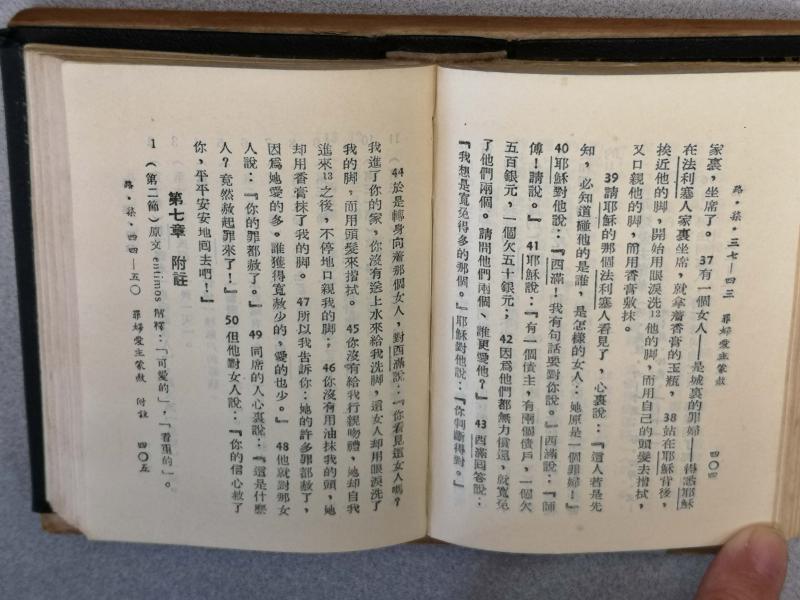 路・柒・三七—四三 罪婦愛主蒙赦 四〇四
家裏，坐席了。37有一個女人——是城裏的罪婦——得悉耶穌
在法利塞人家裏坐席，就拿着香膏的玉瓶，38站在耶穌背後，
挨近他的脚，開始用眼淚洗12他的脚，而用自己的頭髮去揩拭，
又口親他的脚，而用香膏敷抹。
39請耶穌的那個法利塞人看見了，心裏說：『這人若是先
知，必知道碰他的是誰，是怎樣的女人：她原是一個罪婦！』
40耶穌對他說：『西滿！我有句話要對你說。』西滿說：『師
傅！請說。』41耶穌說：『有一個債主，有兩個債戶，一個欠
五百銀元，一個欠五十銀元；42因爲他們都無力償還，就寬免
了他們兩個。請問他們兩個、誰更愛他？』43西滿回答說：
『我想是寬免得多的那個。』耶穌對他說：『你判斷得對。』
44於是轉身向着那個女人，對西滿說：『你看見這女人嗎？
我進了你的家，你沒有送上水來給我洗脚，這女人却用眼淚洗了
我的脚，而用頭髮來揩拭。45你沒有給我行親吻禮，她却自我
進來13之後，不停地口親我的脚；46你沒有用油抹我的頭，她
却用香膏抹了我的脚。47所以我告訴你：她的許多罪都赦了，
因爲她愛的多。誰獲得寬赦少的，愛的也少。』48他就對那女
人說：『你的罪都赦了。』49同席的人心裏說：『這是什麽
人？竟然赦起罪來了！』50但他對女人說：『你的信心救了
你，平平安安地囘去吧！』
第七章 附註
1（第二節）原文 entimos 解釋：「可愛的」，「看重的」。
路・柒・四四—五〇 罪婦愛主蒙赦 附註 四〇五